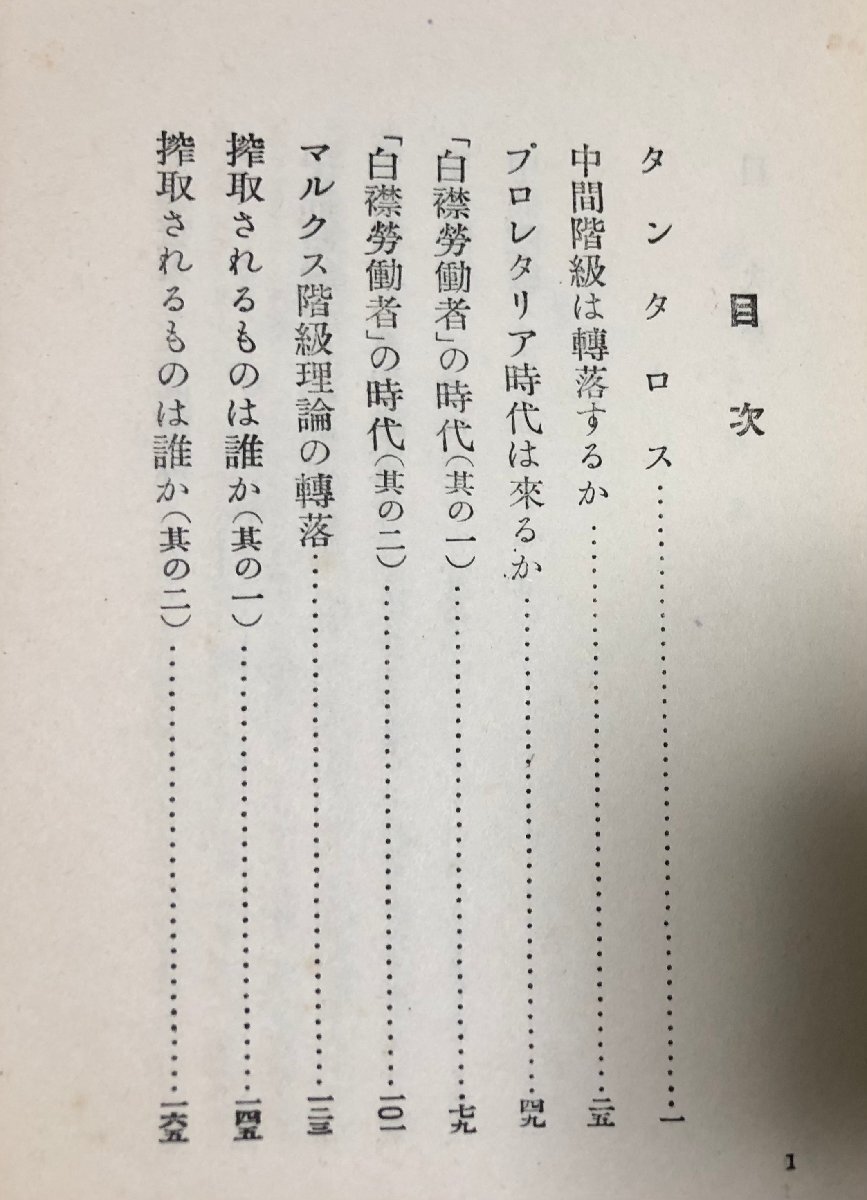 目次
タンタロス……………………一
中間階級は轉落するか……………………二五
プロレタリア時代は來るか……………………四九
「白襟勞働者」の時代(其の一)……………………七九
「白襟勞働者」の時代(其の二)……………………一〇一
マルクス階級理論の轉落……………………一二三
搾取されるものは誰か(其の一)……………………一四五
搾取されるものは誰か(其の二)……………………一六五
1